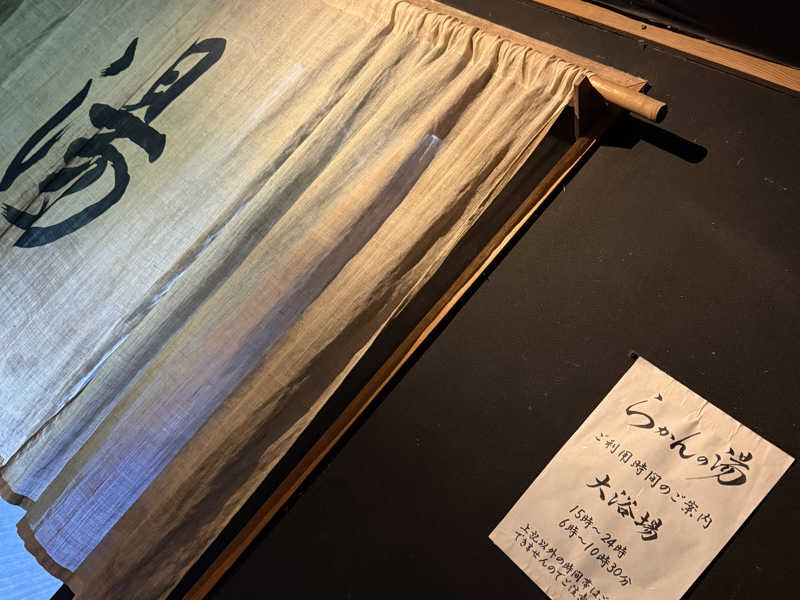 湯
らかんの湯
ご利用時間のご案内
大浴場
15時～24時
6時～10時30分
上記以外の時間帯はご
できませんのでご注意